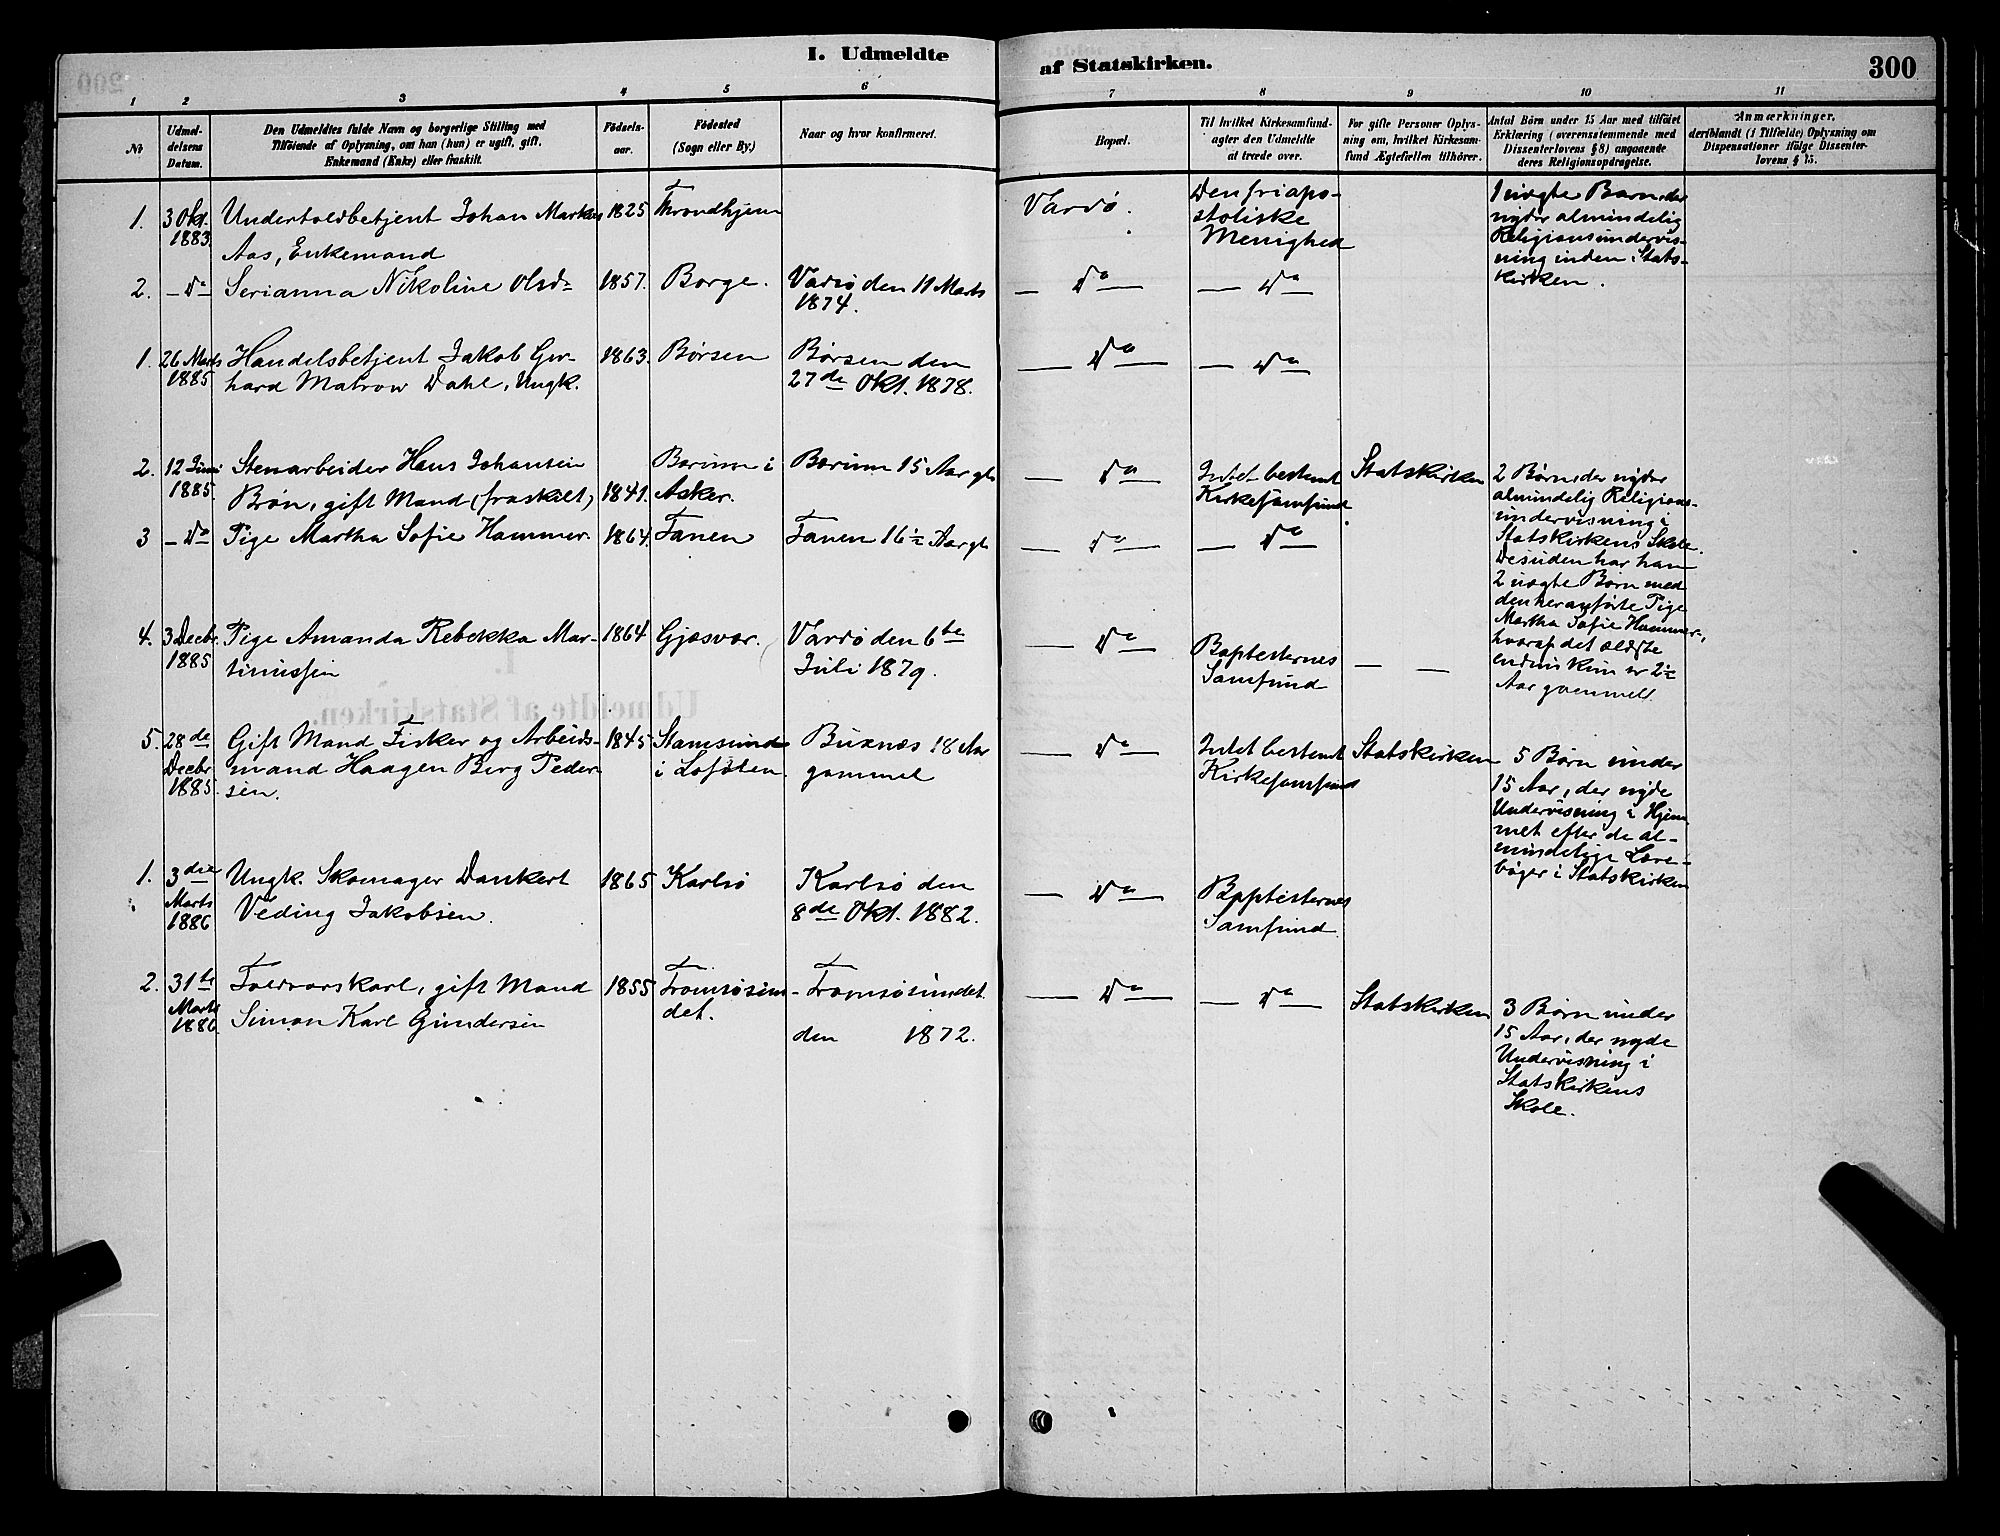 I. Udmeldte af Statskirken.
300
1 2 3 4 5 6 7 8 9 10 11
No
Udmel-
delsens
Datum.
Den Udmeldtes fulde Navn og borgerlige Stilling med
Tilföiende af Oplysning, om han (hun) er ugift, gift,
Enkemand (Enke) eller fraskilt.
Födsels-
aar.
Födested
(Sogn eller By.)
Naar og hvor konfirmeret.
Bopæl.
Til hvilket Kirkesamfund
agter den Udmeldte
at træde over.
For gifte Personer Oplys-
ning om, hvilket Kirkesam-
fund Ægtefællen tilhörer.
Antal Börn under 15 Aar med tilföiet
Erklæring (overensstemmende med
Dissenterlovens § 8) angaaende
deres Religionsopdragelse.
Anmærkninger,
deriblandt (i Tilfælde) Oplysning om
Dispensationer ifölge Dissenter-
lovens § 15.
1.
3 Okt.
1883.
Undertoldbetjent Johan Markus
Aas, Enkemand
1825
Throndhjem
Vardø.
Den friapo-
stoliske
Menighed
1 uægte Barn, der
nyder almindelig
Religionsundervis-
ning inden Stats-
kirken.
2.
— Do
Serianna Nikoline Olsd.
1857.
Borge.
Vardø den 11 Marts
1874.
— Do —
— Do —
1.
26 Marts
1885
Handelsbetjent Jakob Ger-
hard Matrow Dahl, Ungk.
1863.
Børsen
Børsen den
27de Okt. 1878.
— Do —
— Do —
2.
12 Juni
1885.
Stenarbeider Hans Johansen
Brøn, gift Mand (fraskilt)
1841.
Bærum i
Asker.
Bærum 15 Aar gl.
— Do —
Intet bestemt
Kirkesamfund.
Statskirken
2 Børn, der nyder
almindelig Religions-
undervisning i
Statskirkens Skole.
Desuden har han
2 uægte Børn med
den heranførte Pige
Martha Sofie Hammer,
hvoraf det ældste
endnu kun er 2½
Aar gammelt
3
— Do
Pige Martha Sofie Hammer.
1864.
Tanen
Tanen 16½ Aar gl.
— Do —
— Do —
4.
3 Decbr.
1885
Pige Amanda Rebekka Mar-
tinussen
1864
Gjæsvær.
Vardø den 6te
Juli 1879.
— Do —
Baptisternes
Samfund
— —
5.
28de
Decbr
1885.
Gift Mand Fisker og Arbeids-
mand Haagen Berg Peder-
sen.
1845
Stamsund
i Lofoten
Buxnæs 18 Aar
gammel
— Do —
Intet bestemt
Kirkesamfund
Statskirken
5 Børn under
15 Aar, der nyde
Undervisning i Hjem-
met efter de al-
mindelige Lære-
bøger i Statskirken
1.
3die
Marts
1886
Ungk. Skomager Dankert
Veding Jakobsen.
1865
Karlsø
Karlsø den
8de Okt. 1882.
— Do —
Baptisternes
Samfund
2.
31te
Marts
1886
Toldvarskarl, gift Mand
Simon Karl Gundersen
1855
Tromsøsun-
det.
Tromsøsundet
den 1872.
— Do —
— Do —
Statskirken
3 Børn under
15 Aar, der nyde
Undervisning i
Statskirkens
Skole.